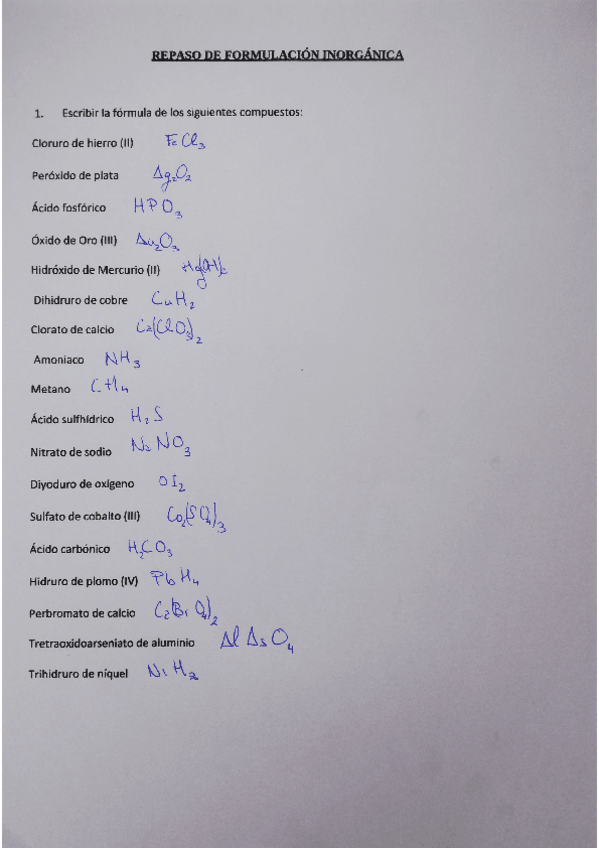 REPASO DE FORMULACIÓN INORGÁNICA
1. Escribir la fórmula de los siguientes compuestos:
Cloruro de hierro (II) FeCl3
Peróxido de plata Ag2O2
Ácido fosfórico HPO3
Óxido de Oro (III) Au2O3
Hidróxido de Mercurio (II) Hg(OH)2
Dihidruro de cobre CuH2
Clorato de calcio Ca(ClO3)2
Amoniaco NH3
Metano CH4
Ácido sulfhídrico H2S
Nitrato de sodio NaNO3
Diyoduro de oxígeno OI2
Sulfato de cobalto (III) Co2(SO4)3
Ácido carbónico H2CO3
Hidruro de plomo (IV) PbH4
Perbromato de calcio Ca(BrO4)2
Tretraoxidoarseniato de aluminio AlAsO4
Trihidruro de níquel